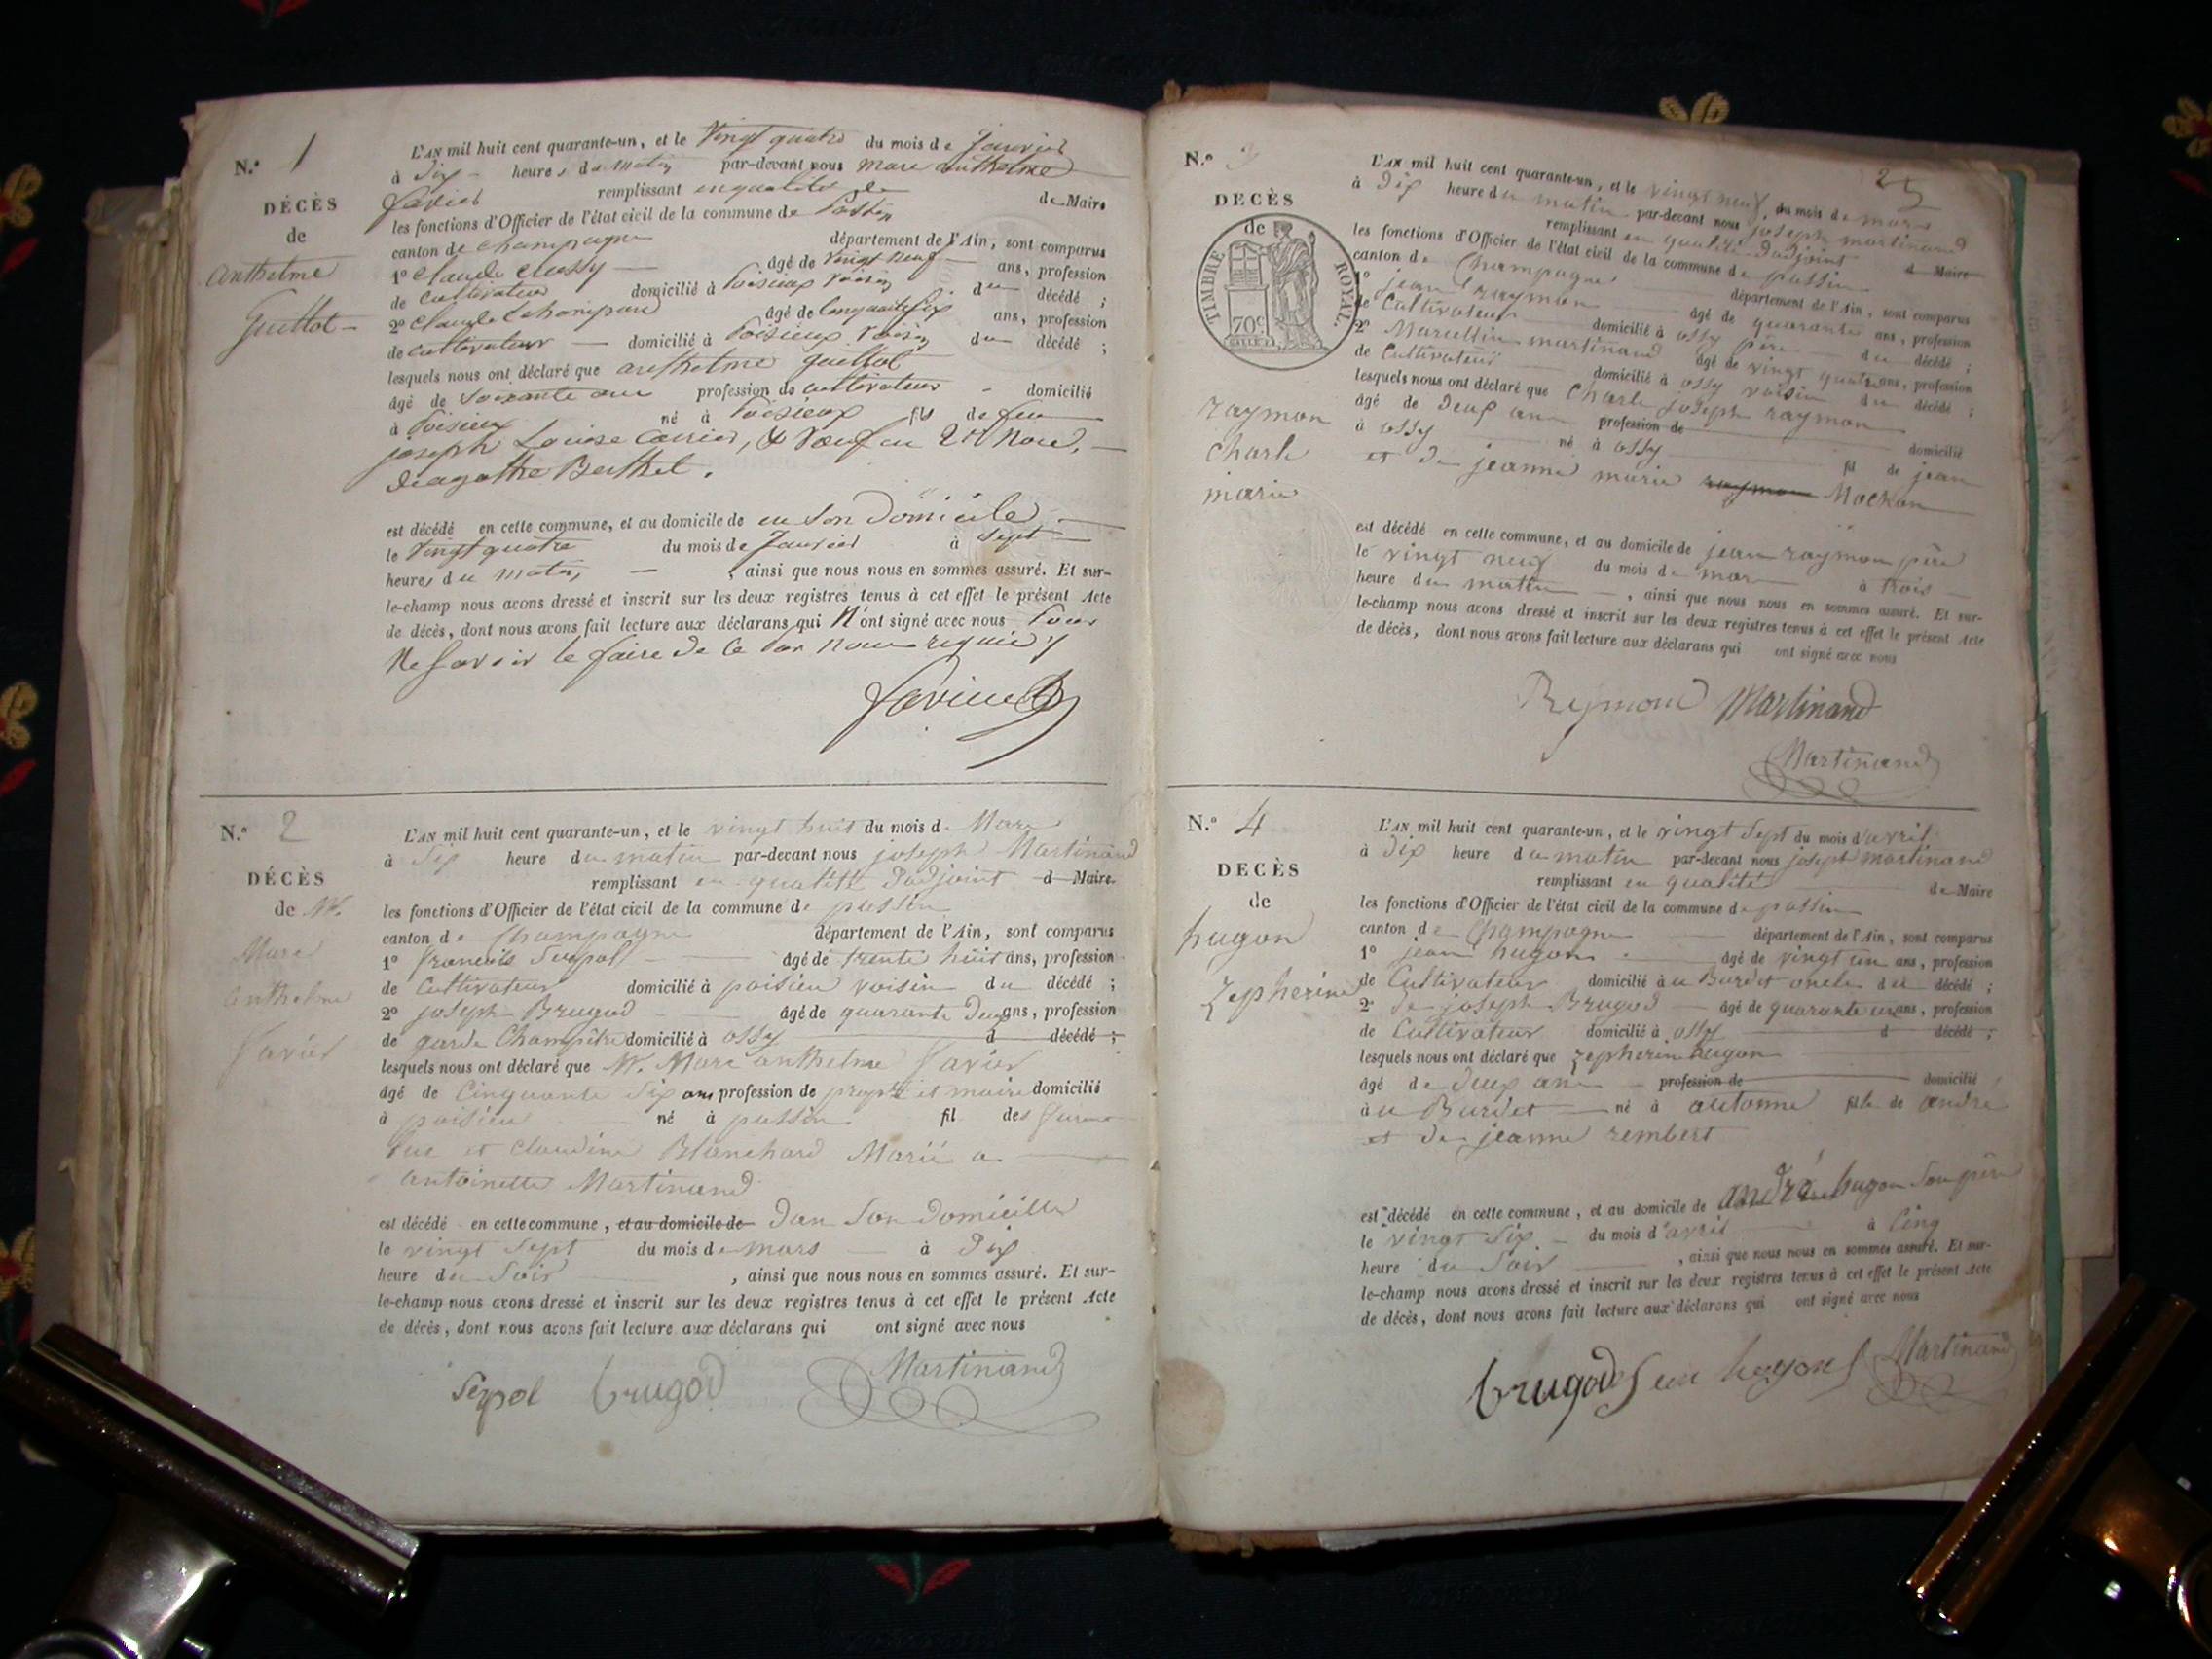 N.° 1
DÉCÈS
de
anthelme
Guillot
L'AN mil huit cent quarante-un, et le Vingt quatre du mois de Janvier
à Dix heures du matin par-devant nous marc anthelme
Savier remplissant en qualité de de Maire
les fonctions d'Officier de l'état civil de la commune de Passin
canton de champagne département de l'Ain, sont comparus
1° claude clussy âgé de vingt neuf ans, profession
de cultivateur domicilié à Poisieux voisin du décédé ;
2° claude âgé de Cinquante six ans, profession
de cultivateur domicilié à Poisieux voisin du décédé ;
lesquels nous ont déclaré que anthelme guillot
âgé de Soixante profession de cultivateur domicilié
à Poisieux né à Poisieux fils de feu
joseph Louise & Veuf en
D'agathe Berthet.
est décédé en cette commune, et au domicile de en Son Domicile
le Vingt quatre du mois de Janvier à Sept
heures du matin, ainsi que nous nous en sommes assuré. Et sur-
le-champ nous avons dressé et inscrit sur les deux registres tenus à cet effet le présent Acte
de décès, dont nous avons fait lecture aux déclarans qui N'ont signé avec nous Pour
Ne Savoir le faire de ce par nous requis
N.° 2
DÉCÈS
de M.
Marc
anthelme
Savier
L'AN mil huit cent quarante-un, et le vingt huit du mois de Mars
à Six heure du matin par-devant nous joseph Martinand
remplissant en qualité D'adjoint d Maire
les fonctions d'Officier de l'état civil de la commune de passin
canton de Champagne département de l'Ain, sont comparus
1° francois Serpol âgé de trente huit ans, profession
de Cultivateur domicilié à poisieu voisin du décédé ;
2° joseph Brugod âgé de quarante Deux ans, profession
de garde Champêtre domicilié à ossy d décédé ;
lesquels nous ont déclaré que M. Marc anthelme Savier
âgé de Cinquante Six ans profession de propre et maire domicilié
à poisieu né à passin fil des
et Claudine Blanchard Marié a
antoinette Martinand
est décédé en cette commune, et au domicile de Dan Son Domicille
le vingt Sept du mois de mars à Dix
heure du Soir, ainsi que nous nous en sommes assuré. Et sur-
le-champ nous avons dressé et inscrit sur les deux registres tenus à cet effet le présent Acte
de décès, dont nous avons fait lecture aux déclarans qui ont signé avec nous
Serpol Brugod Martinand
25
N.° 3
DECÈS
de
TIMBRE ROYAL.
70c.
raymon
Charle
marie
L'AN mil huit cent quarante-un, et le vingt neuf, du mois de mars
à Dix heure du matin par-devant nous joseph martinand
remplissant en qualité D'adjoint d Maire
les fonctions d'Officier de l'état civil de la commune de passin
canton de Champagne département de l'Ain, sont comparus
1° jean raymon âgé de quarante ans, profession
de Cultivateur domicilié à ossy père du décédé ;
2° Marcellin martinand âgé de vingt quatre ans, profession
de Cultivateur domicilié à ossy voisin du décédé ;
lesquels nous ont déclaré que Charle joseph raymon
âgé de Deux ans profession de domicilié
à ossy né à ossy fil de jean
et de jeanne marie raymon Mockon
est décédé en cette commune, et au domicile de jean raymon père
le vingt neuf du mois de mars à trois
heure du matin, ainsi que nous nous en sommes assuré. Et sur-
le-champ nous avons dressé et inscrit sur les deux registres tenus à cet effet le présent Acte
de décès, dont nous avons fait lecture aux déclarans qui ont signé avec nous
Reymond Martinand
Martinand
N.° 4
DECÈS
de
hugon
Zepherine
L'AN mil huit cent quarante-un, et le vingt Sept du mois d'avril
à Dix heure du matin par-devant nous joseph martinand
remplissant en qualité de Maire
les fonctions d'Officier de l'état civil de la commune de passin
canton de Champagne département de l'Ain, sont comparus
1° jean hugon âgé de vingt un ans, profession
de Cultivateur domicilié à au Burdet oncle du décédé ;
2° de joseph Brugod âgé de quarante un ans, profession
de Cultivateur domicilié à ossy d décédé ;
lesquels nous ont déclaré que zepherine hugon
âgé de Deux ans profession de domicilié
à au Burdet né à fille de andré
et de jeanne rembert
est décédé en cette commune, et au domicile de andré hugon Son père
le vingt Six du mois d'avril à Cinq
heure du Soir, ainsi que nous nous en sommes assuré. Et sur-
le-champ nous avons dressé et inscrit sur les deux registres tenus à cet effet le présent Acte
de décès, dont nous avons fait lecture aux déclarans qui ont signé avec nous
Brugod Martinand